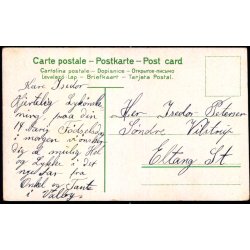 Carte postale - Postkarte - Post card
Cartolina postale - Dopisnice - Открытое письмо
Levelező Lap - Briefkaart - Tarjeta Postal.
Kære Isidor
Hjertelig Lykønsk
ning, paa din
14 aarig Fødselsdag
i morgen Ønsker
dig al mulig Hel
og Lykke i det
nye Aar fra
Onkel og Tante
i Valby
Herr Isidor Petersen
Søndre Vilstrup
Eltang St